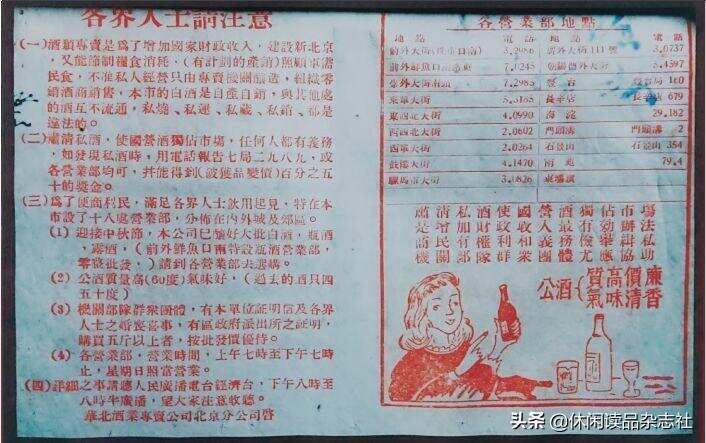 各界人士請注意
(一)酒類專賣是爲了增加國家財政收入，建設新北京
，又能節制糧食消耗，(有計劃的產銷)照顧軍需
民食，不准私人經營只由專賣機關釀造，組織零
銷酒商銷售，本市的白酒是自產自銷，與其他處
的酒互不流通，私燒、私運、私藏、私銷、都是
違法的。
(二)肅清私酒，使國營酒獨佔市場，任何人都有義務
，如發現私酒時，用電話報告七局二九八九，或
各營業部均可，幷能得到(按獲品變價)百分之五
十的獎金。
(三)爲了便商利民，滿足各界人士飲用起見，特在本
市設了十八處營業部，分佈在內外城及郊區。
(1)迎接中秋節，本公司已釀好大批白酒，瓶酒
，露酒，(前外鮮魚口南特設瓶酒營業部，
零整批發，)請到各營業部去選購。
(2)公酒質量高(60度)氣味好，(過去的酒只四
五十度)
(3)機關部隊群衆團體，有本單位証明信及各界
人士之婚喪喜事，有區政府派出所之証明，
購買五斤以上者，按批發價優待。
(4)各營業部，營業時間，上午七時至下午七時
止，星期日照常營業。
(四)詳細之事請聽人民廣播電台經濟台，下午八時至
八時半廣播，望大家注意收聽。
華北酒業專賣公司北京分公司啓
各營業部地點
地點 電話 地點 電話
3.2986 3.0737
7.1245 3.4597
7.2985 160
東單大街 長辛店 679
東四北大街 4.0990 海淀 29.182
西四北大街 2.0602 門頭溝 門頭溝 2
西單大街 2.1264 石景山 石景山 354
鼓樓大街 4.1470 南苑 79.4
騾馬市大街 3.1826 東壩鎮
肅清私酒使國營酒獨佔市場
是增加財政收入最有効辦法
商民有權利和義務僅舉私
機關部隊群衆團體尤應協助
公酒{質高價廉
氣味清香
頭条 @休闲读品杂志社